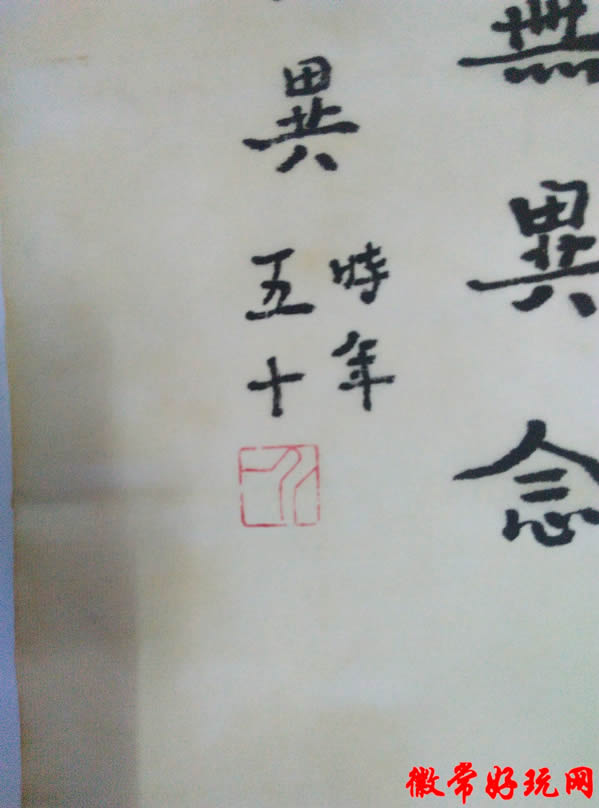 無異念
異
時年
五十
徽常好玩网